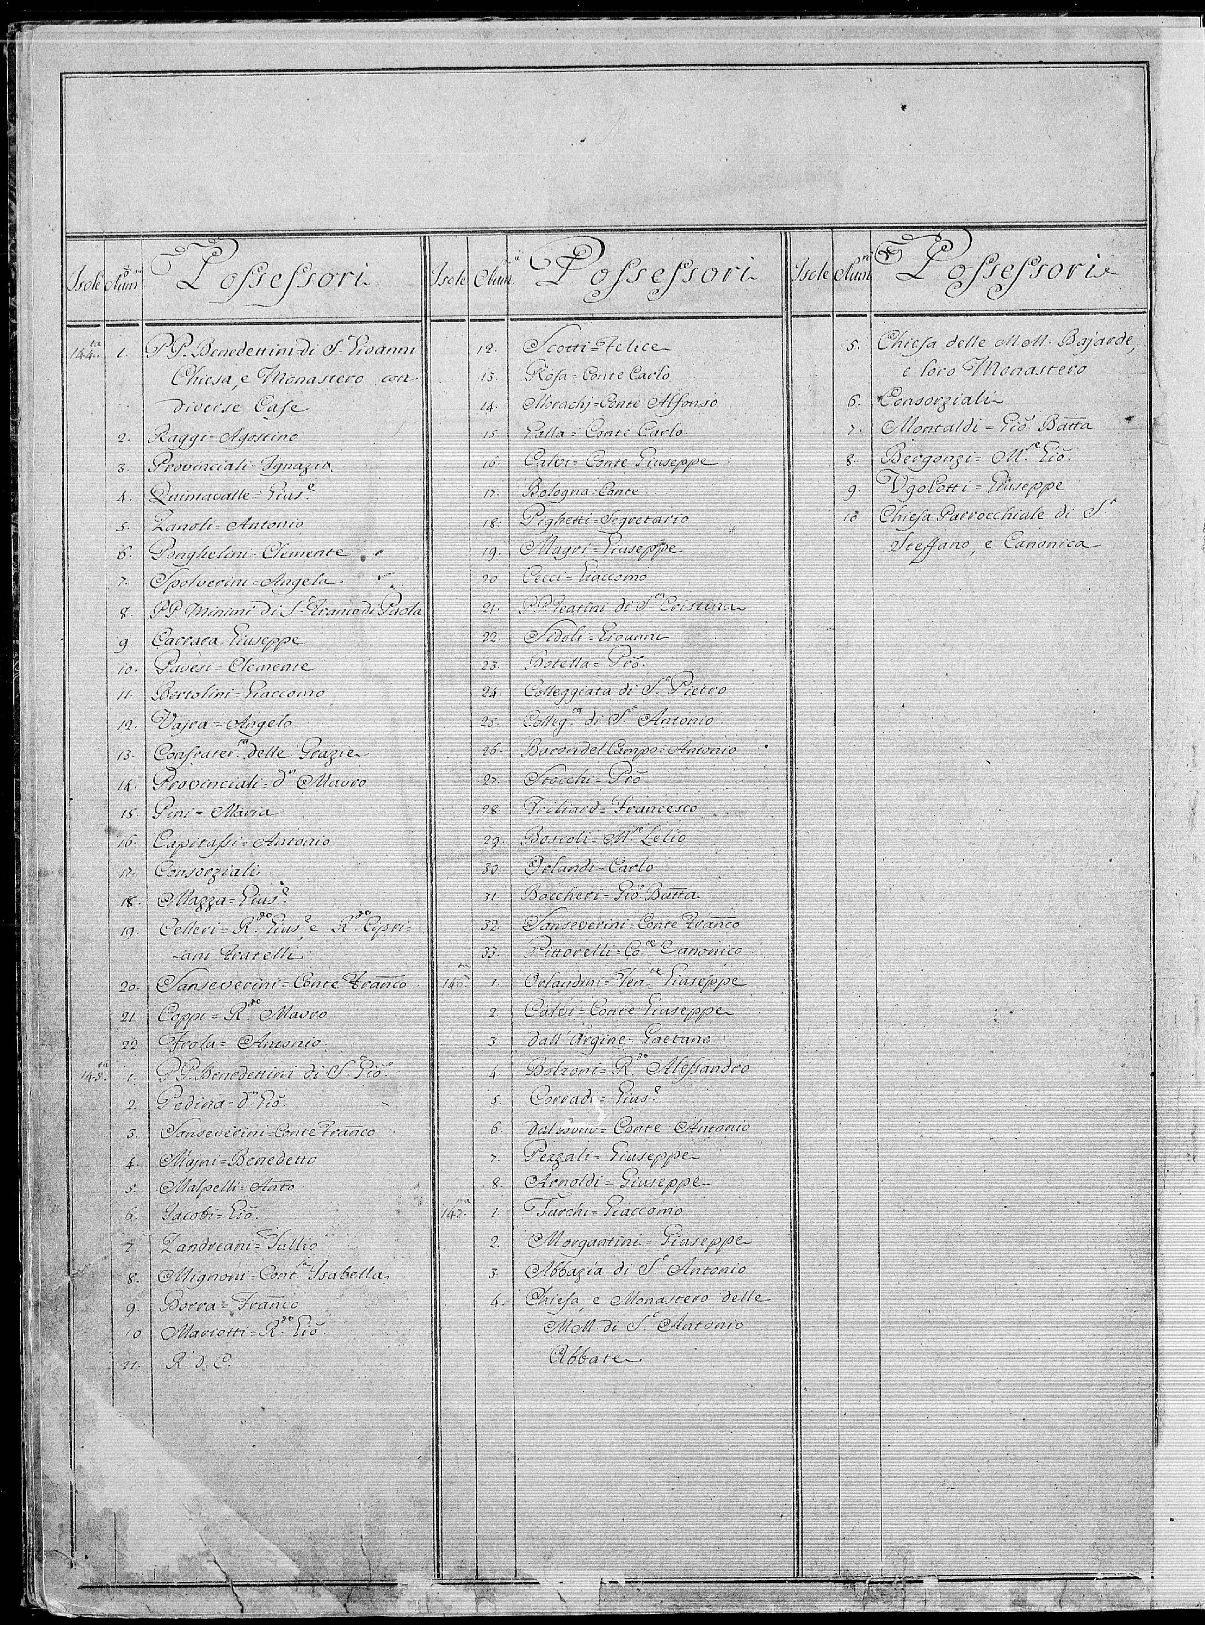 Isole Num.ri Possessori
144.ta 1. PP. Benedettini di S. Giovanni
Chiesa, e Monastero con
diverse Case
2. Raggi = Agostino
3. Provinciali = Ignazio
4. Quintavalle = Gius.e
5. Zanoli = Antonio
6. Ponghelini = Clemente
7. Spolverini = Angela
8. PP. Minimi di S. Franco di Paola
9. Carrara Giuseppe
10. Pavesi = Clemente
11. Bertolini = Giaccomo
12. Vajra = Angelo
13. Confrater.ta delle Grazie
14. Provinciali = D.n Mauro
15. Pini = Maria
16. Capitassi = Antonio
17. Consorziali
18. Mazza = Gius.e
19. Celleri = R.do Gius.e, e R.do Cipri=
=ani Fratelli
20. Sanseverini = Conte Franco
21. Coppi = R.do Mauro
22. Frola = Antonio
145.ta 1. PP. Benedettini di S. Gio.
2. Pedina = D.n Gio.
3. Sanseverini = Conte Franco
4. Majni = Benedetto
5. Malpelli = Anto
6. Jacobi = Gio.
7. Landreani = Tullio
8. Mignoni = Cont.a Isabella
9. Borra = Franco
10. Mariotti = R.do Gio.
11. R. D. C.
Isole Num.ri Possessori
12. Scotti = Felice
13. Rosa = Conte Carlo
14. Morachj = Conte Alfonso
15. Palla = Conte Carlo
16. Calvi = Conte Giuseppe
17. Bologna = Conte
18. Pighetti = Segretario
19. Magri = Giuseppe
20. Cecci = Giaccomo
21. PP. Teatini di S.a Cristina
22. Sidoli = Giovanni
23. Botella = Pro.
24. Colleggiata di S. Pietro
25. Colleg.ta di S. Antonio
26. Baron del Campo = Antonio
27. Stocchi = Pro.
28. Richard = Francesco
29. Boscoli = M.e Lelio
30. Orlandi = Carlo
31. Boccheri = Gio. Batta
32. Sanseverini = Conte Franco
33. Pittorelli = Co.e Canonico
1. Orlandini = Ten.te Giuseppe
2. Calvi = Conte Giuseppe
3. Dall'Argine = Gaetano
4. Bolzoni = R.do Alessandro
5. Corradi = Gius.e
6. Conte Antonio
7. Pezzali = Giuseppe
8. Arnoldi = Giuseppe
1. Turchi = Giaccomo
2. Morgantini = Giuseppe
3. Abbazia di S. Antonio
4. Chiesa, e Monastero delle
MoM. di S. Antonio
Abbate
Isole Num.ri Possessori
5. Chiesa delle MoM. Bajarde,
e loro Monastero
6. Consorziali
7. Montaldi = Gio. Batta
8. Bergonzi = M.e Gio.
9. Ugolotti = Giuseppe
10 Chiesa Parrocchiale di S.
Steffano, e Canonica